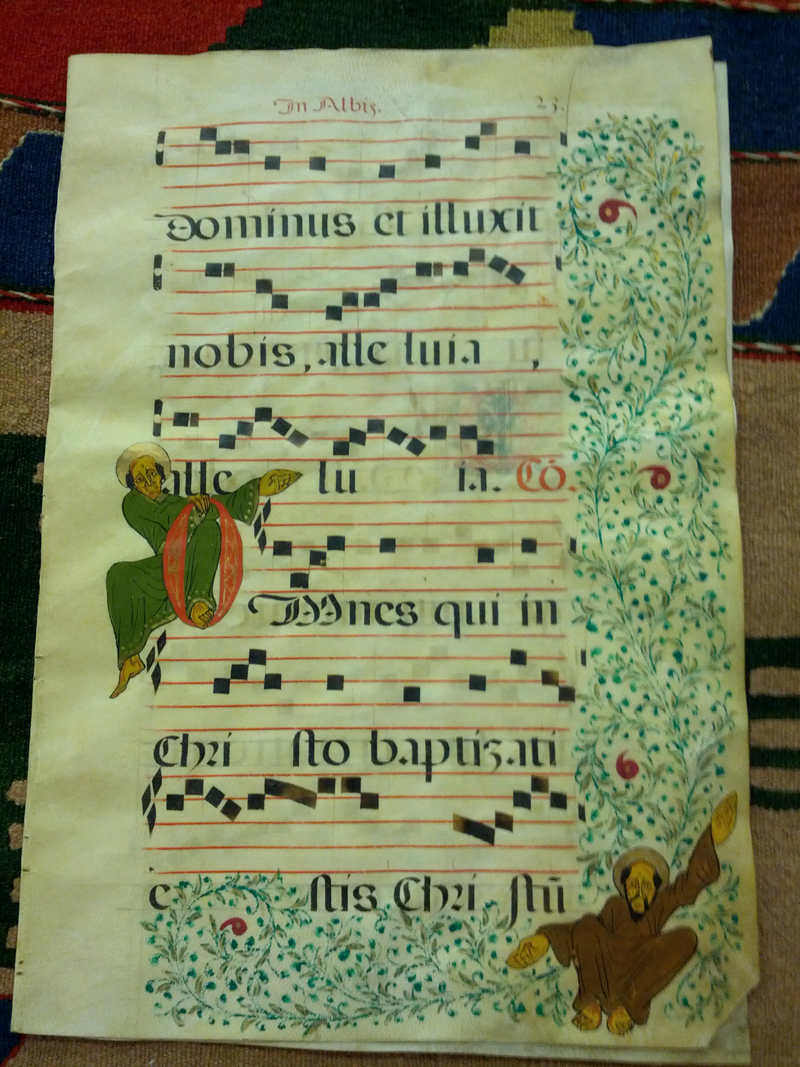 In Albis. 23.
Dominus et illuxit
nobis, alle luia ,
alle lu ia. Cō.
OMnes qui in
Chri sto baptizati
e stis Chri stū